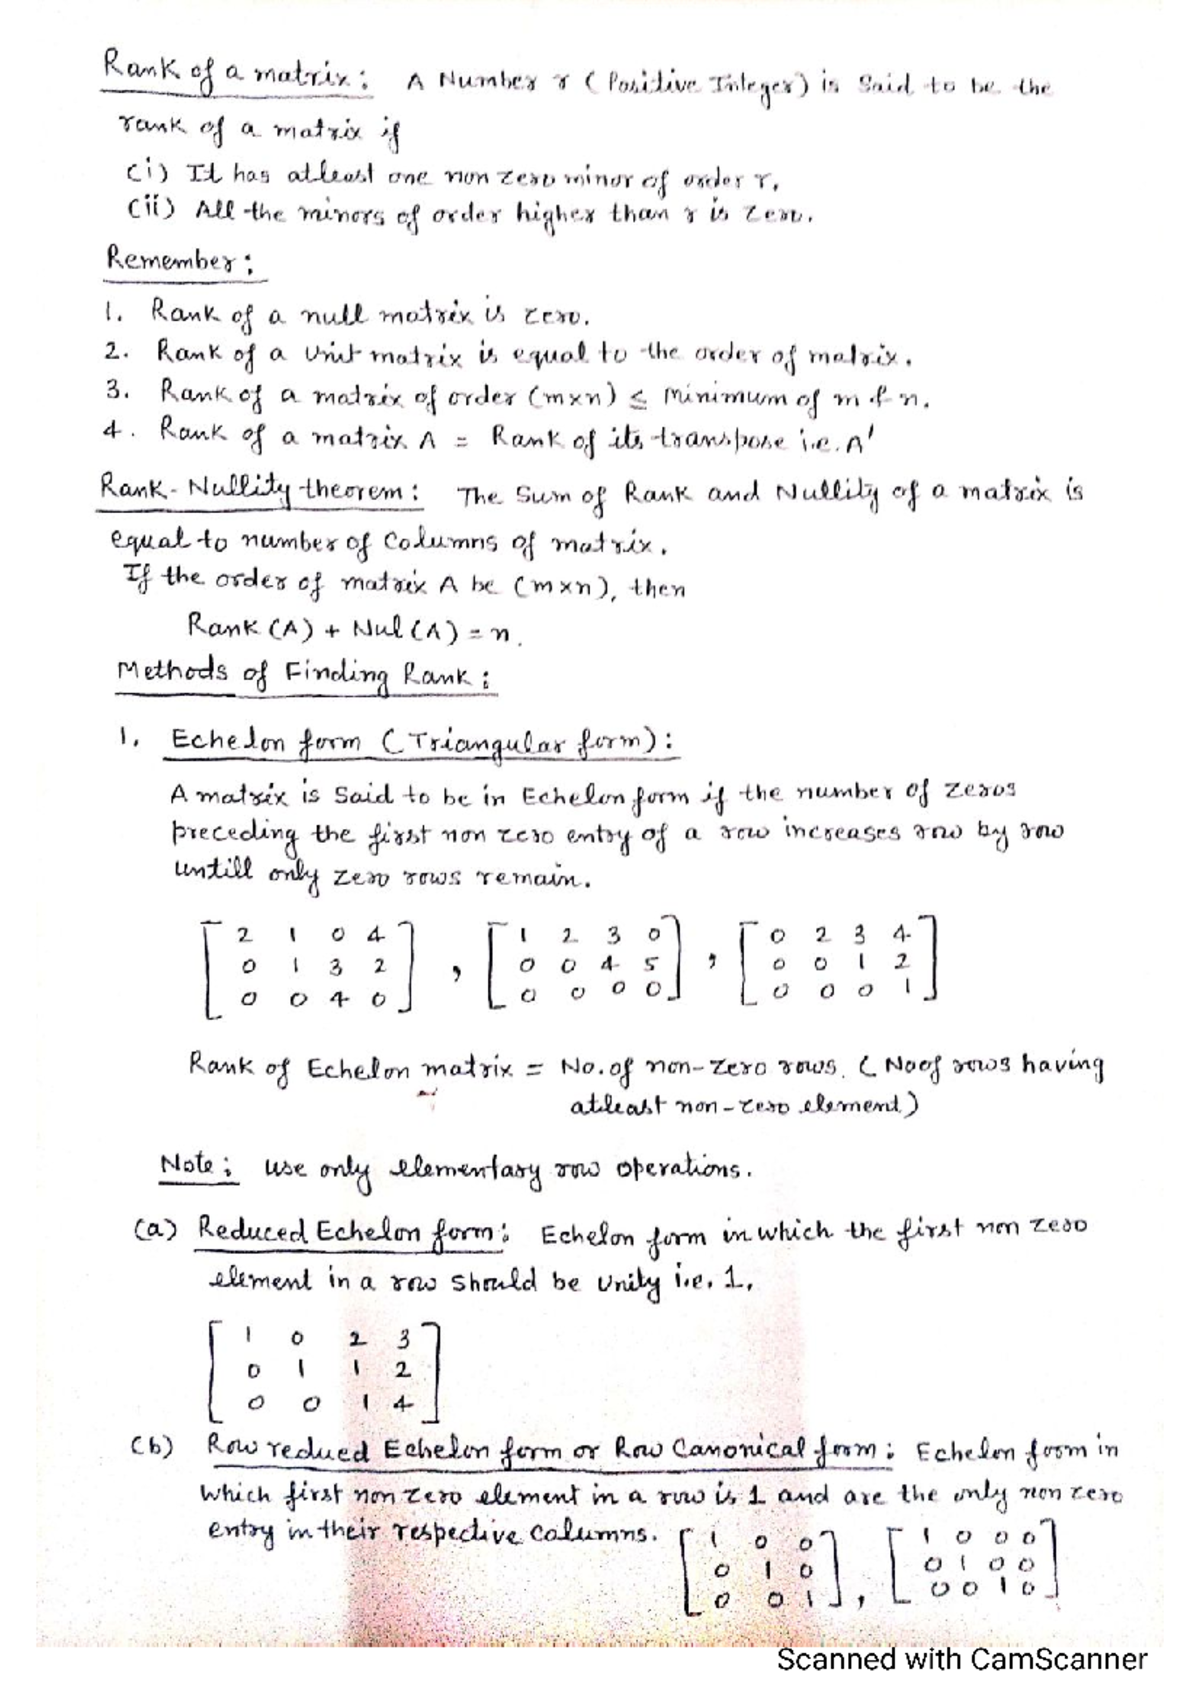 Rank of a matrix: A Number r (Positive Integer) is Said to be the
rank of a matrix if
(i) It has atleast one non zero minor of order r.
(ii) All the minors of order higher than r is zero.
Remember:
1. Rank of a null matrix is zero.
2. Rank of a Unit matrix is equal to the order of matrix.
3. Rank of a matrix of order (m×n) ≤ Minimum of m & n.
4. Rank of a matrix A = Rank of its transpose i.e. A'
Rank-Nullity theorem: The Sum of Rank and Nullity of a matrix is
equal to number of Columns of matrix.
If the order of matrix A be (m×n), then
Rank (A) + Nul (A) = n.
Methods of Finding Rank:
1. Echelon form (Triangular form):
A matrix is Said to be in Echelon form if the number of zeros
preceding the first non zero entry of a row increases row by row
untill only zero rows remain.
[2 1 0 4] [1 2 3 0] [0 2 3 4]
[0 1 3 2], [0 0 4 5], [0 0 1 2]
[0 0 4 0] [0 0 0 0] [0 0 0 1]
Rank of Echelon matrix = No. of non-zero rows. (No of rows having
atleast non-zero element)
Note: use only elementary row operations.
(a) Reduced Echelon form: Echelon form in which the first non zero
element in a row should be Unity i.e. 1.
[1 0 2 3]
[0 1 1 2]
[0 0 1 4]
(b) Row reduced Echelon form or Row Canonical form: Echelon form in
which first non zero element in a row is 1 and are the only non zero
entry in their respective columns.
[1 0 0] [1 0 0 0]
[0 1 0] [0 1 0 0]
[0 0 1], [0 0 1 0]
Scanned with CamScanner